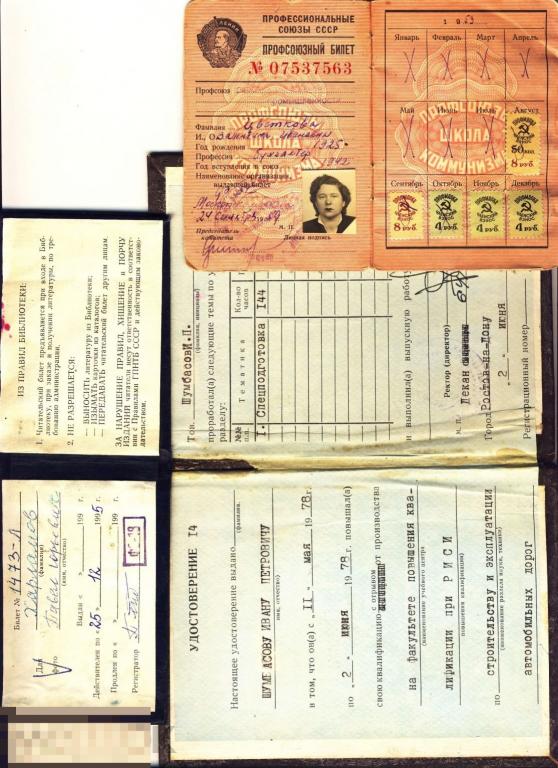 ПРОФЕССИОНАЛЬНЫЕ
СОЮЗЫ СССР
ПРОФСОЮЗНЫЙ БИЛЕТ
№ 07537563
Профсоюз
Фамилия Цветкова
И., О. Валентина Ивановна
Год рождения 1925
Профессия бухгалтер
Год вступления в союз 1942
Наименование организации,
выдавшей билет
М. П.
Председатель
комитета
Личная подпись
19 59
Январь Февраль Март Апрель
Май Июнь Июль Август
50 коп.
8 руб.
Сентябрь Октябрь Ноябрь Декабрь
8 руб. 4 руб. 4 руб. 4 руб.
ПРОФСОЮЗЫ
ШКОЛА
КОММУНИЗМА
ИЗ ПРАВИЛ БИБЛИОТЕКИ:
1. Читательский билет предъявляется при входе в Биб-
лиотеку, при заказе и получении литературы, по тре-
бованию администрации.
2. НЕ РАЗРЕШАЕТСЯ:
— ВЫНОСИТЬ литературу из Библиотеки;
— ИЗЫМАТЬ карточки из каталогов;
— ПЕРЕДАВАТЬ читательский билет другим лицам.
ЗА НАРУШЕНИЕ ПРАВИЛ, ХИЩЕНИЕ и ПОРЧУ
ИЗДАНИЙ читатели несут ответственность в соответст-
вии с Правилами ГПНТБ СССР и действующим законо-
дательством.
Билет № 1473-Л
(фамилия)
(имя, отчество)
Для
фото
Выдан « » 199 г.
Действителен по « 25 » 12 199 5 г.
Продлен по « » 199 г.
Регистратор
Тов. Шумбасови.П.
(фамилия, инициалы)
проработал(а) следующие темы по у
разделу:
№№ п.п. Тематика Кол-во часов
I. Спецподготовка 144
и выполнил(а) выпускную работу
Ректор (директор)
М. П. Декан
Город Ростов-на-Дону
" 2 " ИЮНЯ
Регистрационный номер
УДОСТОВЕРЕНИЕ 14
Настоящее удостоверение выдано
(фамилия,
ШУМБАСОВУ ИВАНУ ПЕТРОВИЧУ
имя, отчество)
в том, что он(а) с " II " мая 1978 г.
по " 2 " июня 1978 г. повышал(а)
свою квалификацию с отрывом от производства
на факультете повышения ква-
(наименование учебного центра
лификации при Р И С И
повышения квалификации)
по строительству и эксплуатации
(наименование раздела науки, техники)
автомобильных дорог